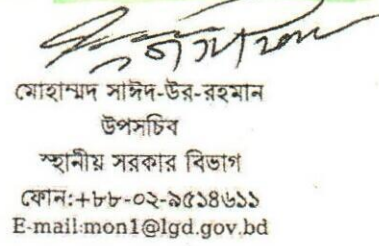 মোহাম্মদ সাঈদ-উর-রহমান
উপসচিব
স্থানীয় সরকার বিভাগ
ফোন:+৮৮-০২-৯৫১৪৬১১
E-mail:mon1@lgd.gov.bd